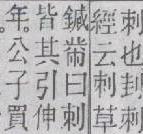 刺也封刺
經云刺草
鍼黹曰刺
皆其引伸
年。公子買